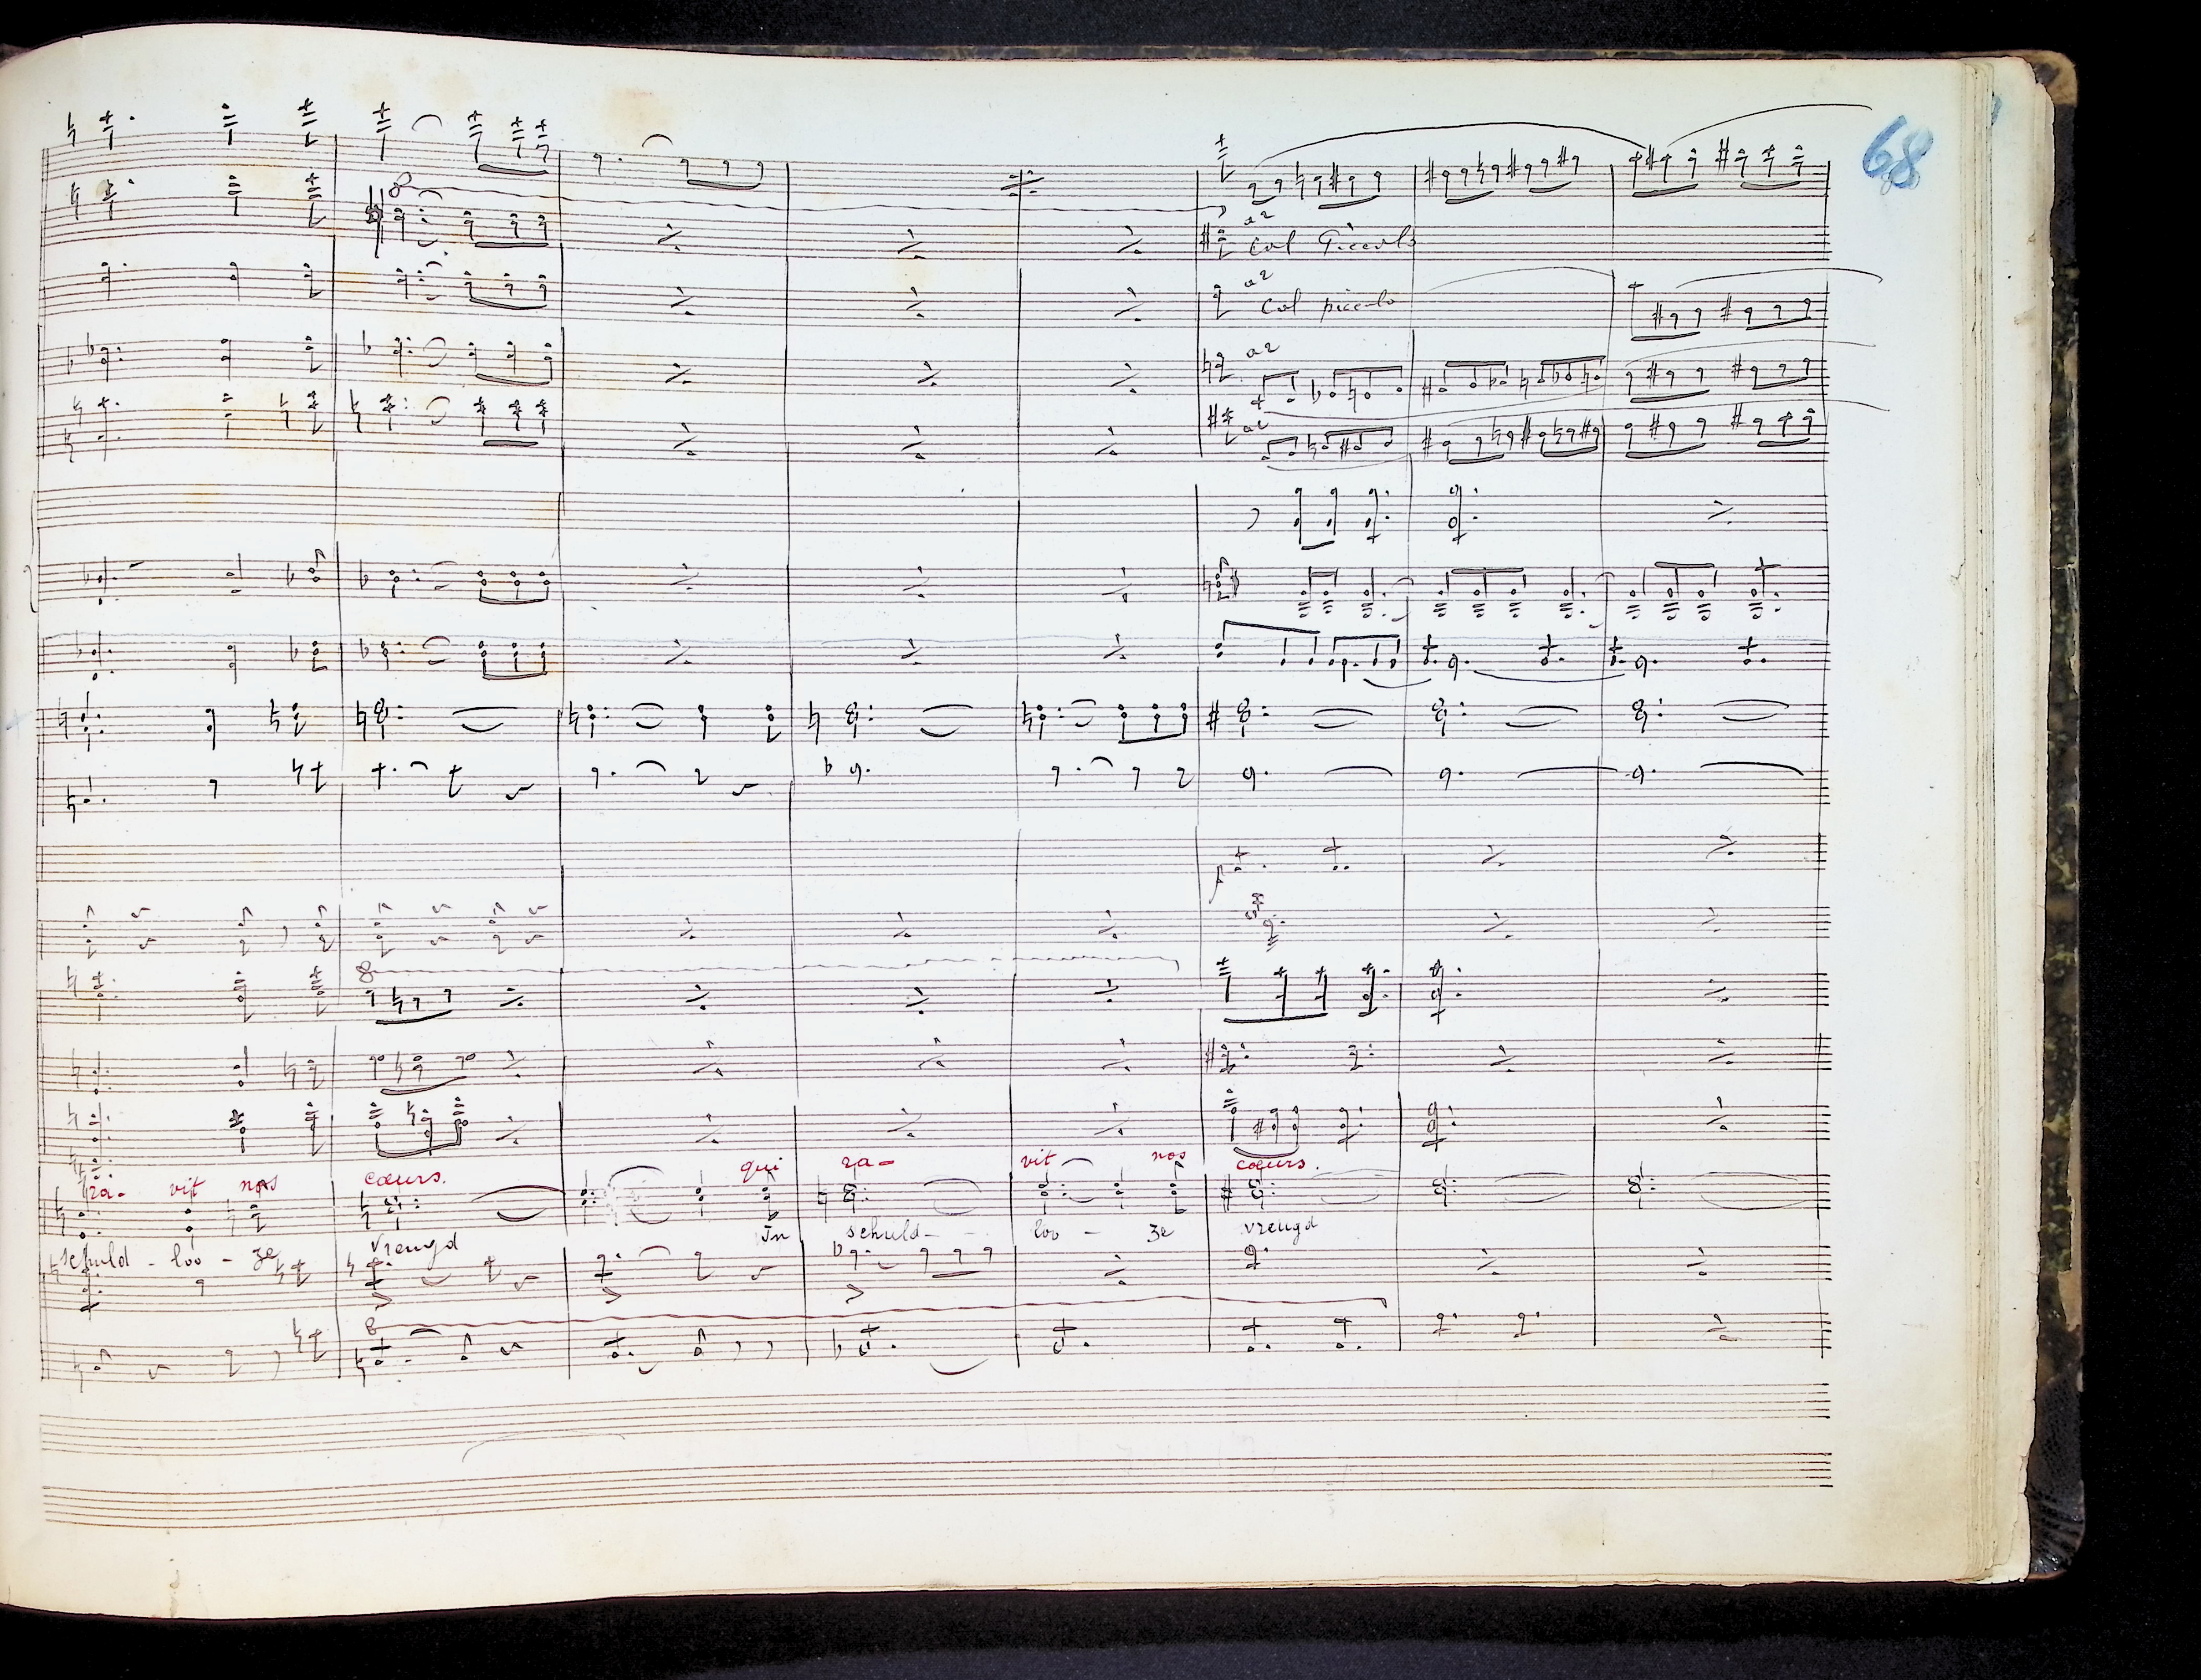 68
8
a2
col Piccolo
a2
col piccolo
a2
a2
8
ra- vit nos cœurs. qui ra- vit nos cœurs.
schuld - loo - ze vreugd In schuld- - loo - ze vreugd
8